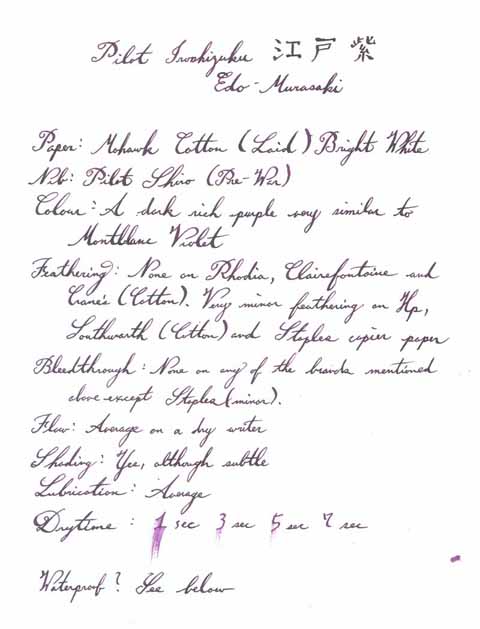 Pilot Iroshizuku 江戸紫
Edo-Murasaki
Paper: Mohawk Cotton (Laid) Bright White
Nib: Pilot Shiro (Pre-War)
Colour: A dark rich purple very similar to
Montblanc Violet
Feathering: None on Rhodia, Clairefontaine and
Crane's (Cotton). Very minor feathering on Hp,
Southwarth (Cotton) and Staples copier paper
Bleedthrough: None on any of the brands mentioned
above except Staples (minor).
Flow: Average on a dry writer
Shading: Yes, although subtle
Lubrication: Average
Drytime: 1 sec 3 sec 5 sec 7 sec
Waterproof? See below